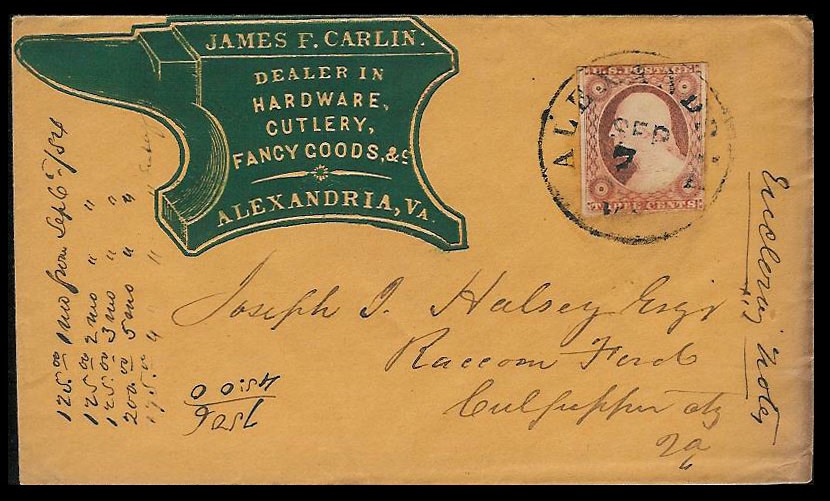 JAMES F. CARLIN.
DEALER IN
HARDWARE,
CUTLERY,
FANCY GOODS, &c
ALEXANDRIA, VA.
U.S. POSTAGE
THREE CENTS
SEP
7
Joseph J. Halsey Esqr
Raccoon Ford
Culpepper Cty
Va
Enclosing Notes
125.00 1 mo from Sept 6th/54
125 00 2 mo " "
125.00 3 mo " "
200.00 5 mo " "
175.0